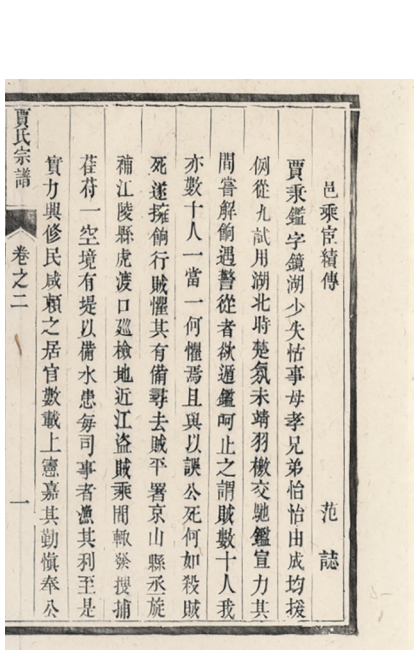 邑乘宦績傳 范誌
賈秉鑑字鏡湖少失怙事母孝兄弟怡怡由成均援
例從九試用湖北時楚氛未靖羽檄交馳鑑宣力其
間嘗解餉遇警從者欲遁鑑呵止之謂賊數十人我
亦數十人一當一何懼焉且與以誤公死何如殺賊
死遂擁餉行賊懼其有備尋去賊平署京山縣丞旋
補江陵縣虎渡口廵檢地近江盗賊乘間輙發搜捕
萑苻一空境有堤以備水患每司事者漁其利至是
實力興修民咸頼之居官數載上憲嘉其勤慎奉公
賈氏宗譜
卷之二
一